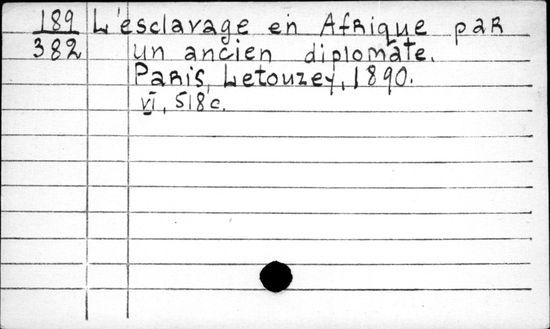 189 L'esclavage en Afrique par
382 un ancien diplomate.
Paris, Letouzey, 1890.
VI, 518 c.